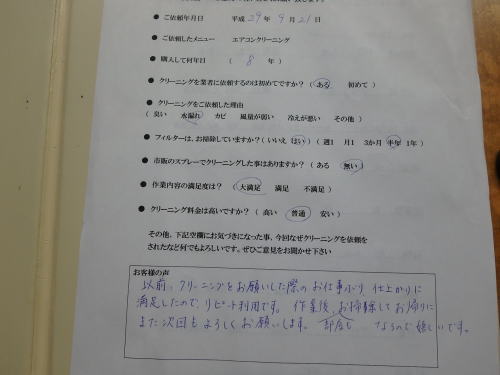 ● ご依頼年月日 平成 29年 9月 21日
● ご依頼したメニュー エアコンクリーニング
● 購入して何年目 ( 8 年)
● クリーニングを業者に依頼するのは初めてですか?( ある 初めて )
● クリーニングをご依頼した理由
( 臭い 水漏れ カビ 風量が弱い 冷えが悪い その他 )
● フィルターは、お掃除していますか?( いいえ はい ) ( 週1 月1 3か月 半年 1年 )
● 市販のスプレーでクリーニングした事はありますか?( ある 無い )
● 作業内容の満足度は? ( 大満足 満足 不満足 )
● クリーニング料金は高いですか?( 高い 普通 安い )
その他、下記空欄にお気づきになった事、今回なぜクリーニングを依頼を
されたなど何でもよろしいです。ぜひご意見をお聞かせ下さい
お客様の声
以前、クリーニングをお願いした際のお仕事ぶり 仕上がりに
満足したので、リピート利用です。作業後、お掃除してお帰りに
また次回もよろしくお願いします。 なるので嬉しいです。